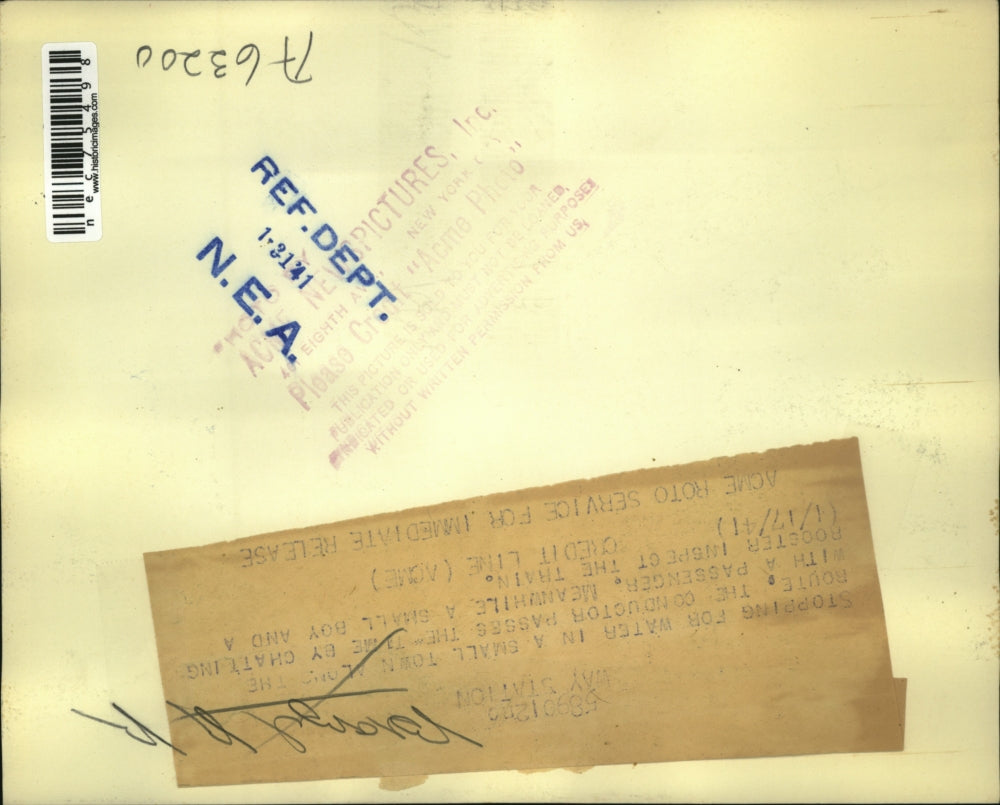 A63200
nec75498
www.historicimages.com
REF. DEPT.
1-3141
N. E. A.
ACME NEWSPICTURES, Inc.
EIGHTH AVE. NEW YORK
Please Credit "Acme Photo"
THIS PICTURE IS SOLD TO YOU FOR YOUR
PUBLICATION ONLY AND MUST NOT BE LOANED,
SYNDICATED OR USED FOR ADVERTISING PURPOSES
WITHOUT WRITTEN PERMISSION FROM US.
WAY STATION
STOPPING FOR WATER IN A SMALL TOWN ALONG THE
ROUTE, THE CONDUCTOR PASSES THE TIME BY CHATTING
WITH A PASSENGER. MEANWHILE A SMALL BOY AND A
ROOSTER INSPECT THE TRAIN.
CREDIT LINE (ACME)
(1/17/41)
ACME ROTO SERVICE FOR IMMEDIATE RELEASE